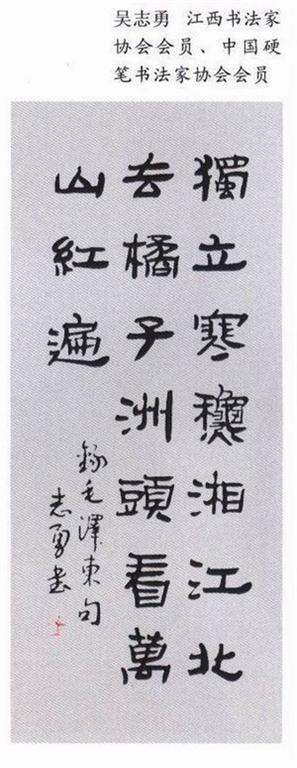 吴志勇 江西书法家
协会会员、中国硬
笔书法家协会会员
獨立寒龝湘江北
去橘子洲頭看萬
山紅遍
錄毛澤東句
志勇書